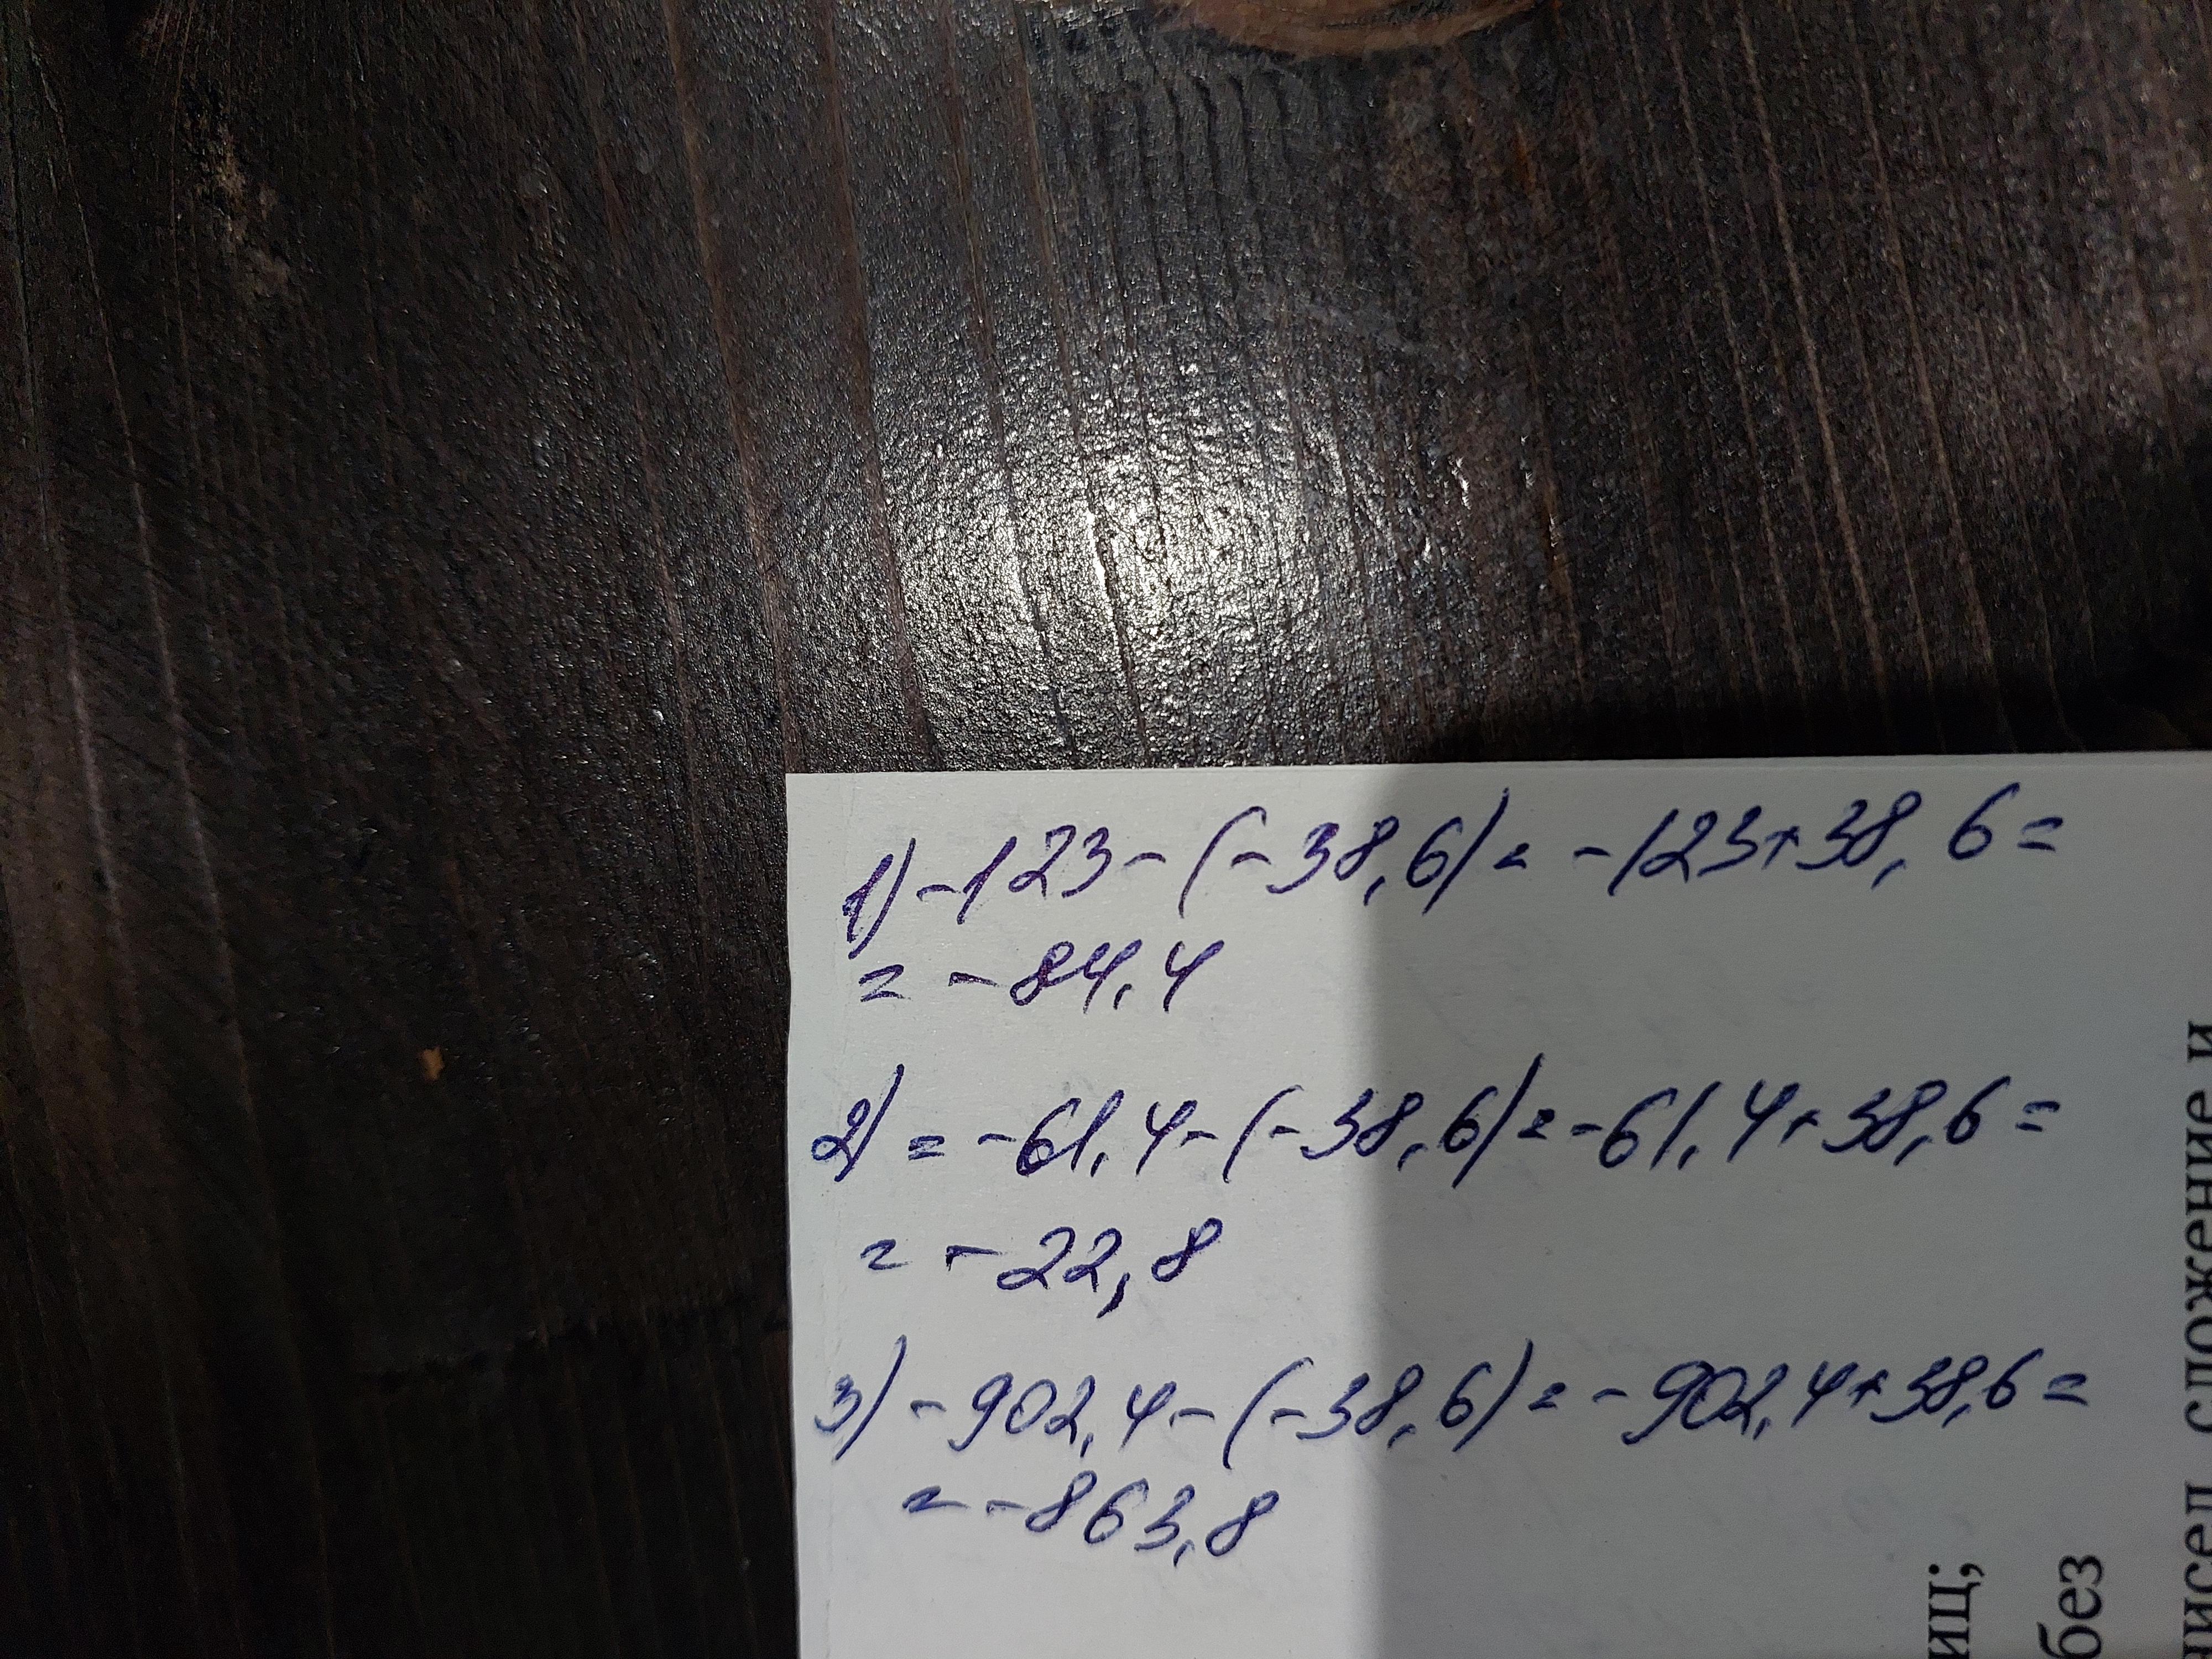 1) -123-(-38,6)= -123+38,6=
= -84,4
2) = -61,4-(-38,6)=-61,4+38,6=
= -22,8
3) -902,4-(-38,6)= -902,4+38,6=
= -863,8
иц;
без
чисел сложение и